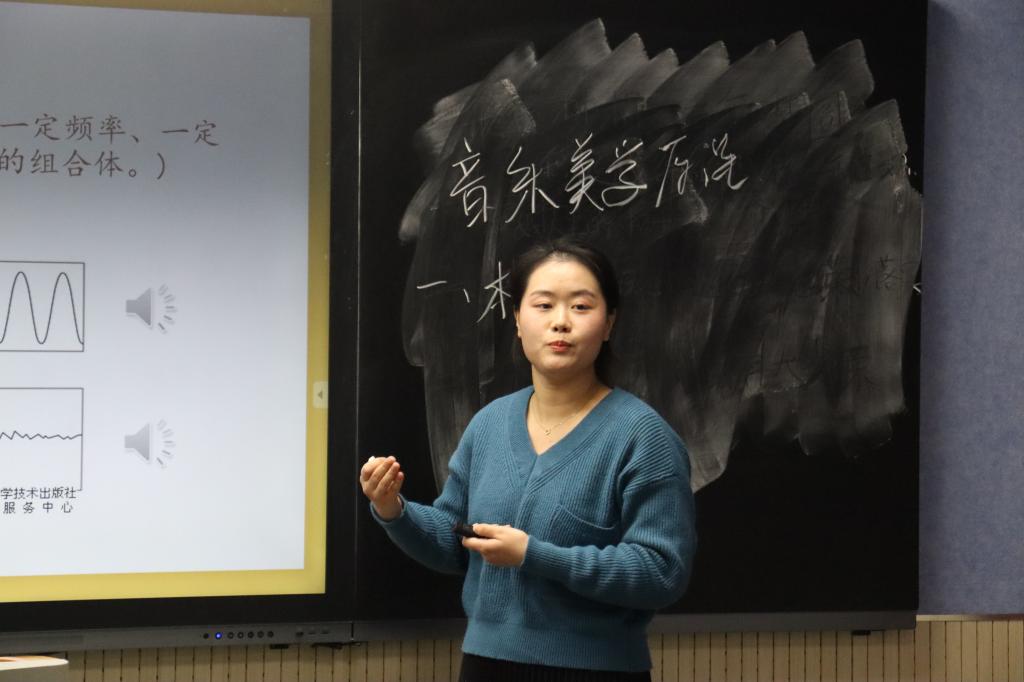 一定频率、一定
的组合体。)
学技术出版社
服务中心
音乐美学
一、本